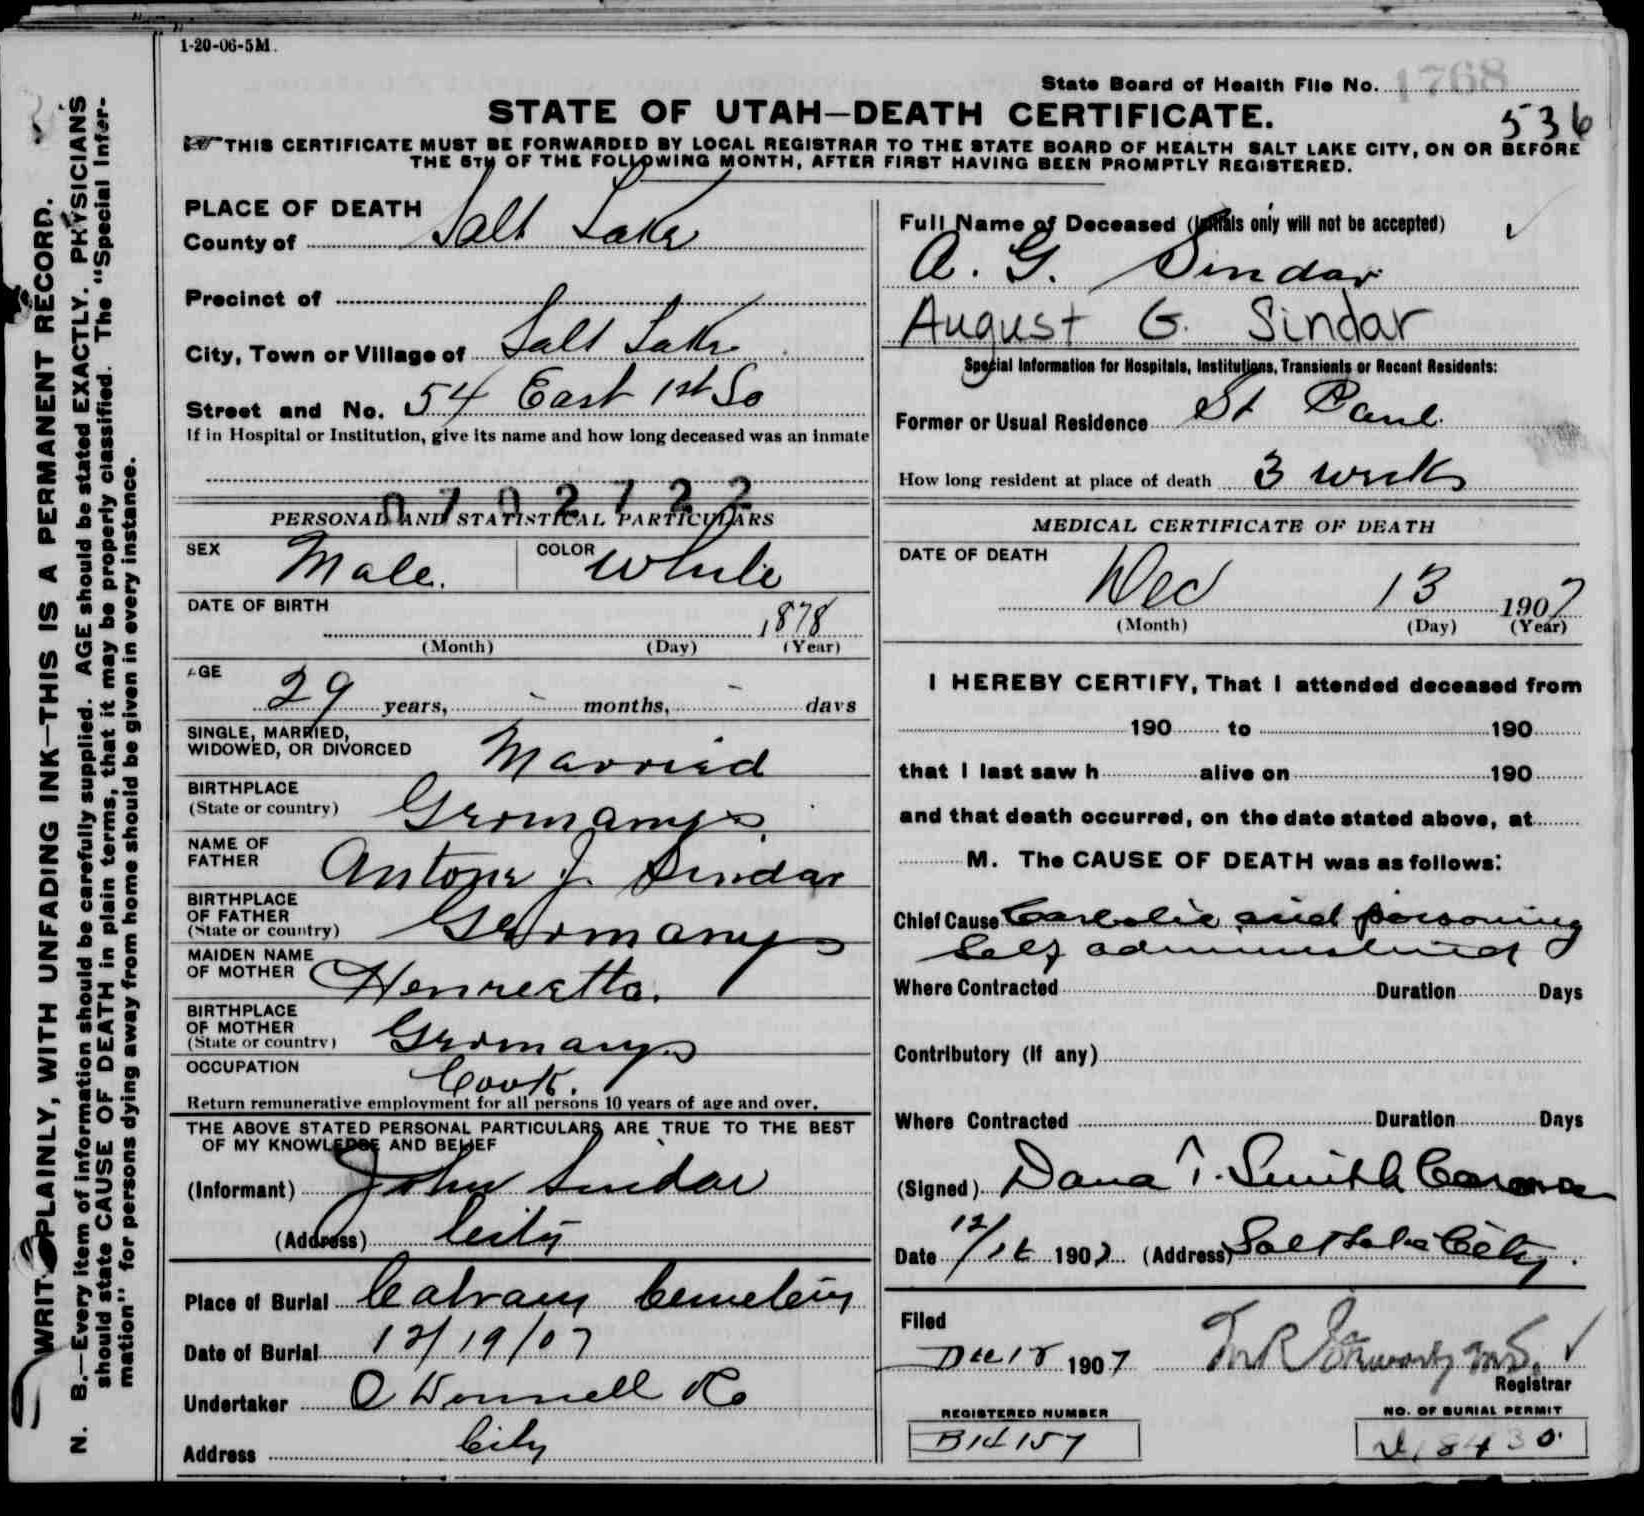 1-20-06-5M.
State Board of Health File No. 1768
STATE OF UTAH—DEATH CERTIFICATE.
536
THIS CERTIFICATE MUST BE FORWARDED BY LOCAL REGISTRAR TO THE STATE BOARD OF HEALTH SALT LAKE CITY, ON OR BEFORE
THE 5TH OF THE FOLLOWING MONTH, AFTER FIRST HAVING BEEN PROMPTLY REGISTERED.
WRITE PLAINLY, WITH UNFADING INK—THIS IS A PERMANENT RECORD.
N. B.—Every item of information should be carefully supplied. AGE should be stated EXACTLY. PHYSICIANS
should state CAUSE OF DEATH in plain terms, that it may be properly classified. The "Special Infor-
mation" for persons dying away from home should be given in every instance.
PLACE OF DEATH
County of Salt Lake
Precinct of
City, Town or Village of Salt Lake
Street and No. 54 East 1st So
If in Hospital or Institution, give its name and how long deceased was an inmate
0702122
PERSONAL AND STATISTICAL PARTICULARS
SEX Male. COLOR White
DATE OF BIRTH 1878
(Month) (Day) (Year)
AGE
29 years, - months, - days
SINGLE, MARRIED,
WIDOWED, OR DIVORCED Married
BIRTHPLACE
(State or country) Germany
NAME OF
FATHER Antone J. Sindar
BIRTHPLACE
OF FATHER
(State or country) Germany
MAIDEN NAME
OF MOTHER Henrietta.
BIRTHPLACE
OF MOTHER
(State or country) Germany
OCCUPATION Cook.
Return remunerative employment for all persons 10 years of age and over.
THE ABOVE STATED PERSONAL PARTICULARS ARE TRUE TO THE BEST
OF MY KNOWLEDGE AND BELIEF
(Informant) John Sindar
(Address) City
Place of Burial Calvary Cemetery
Date of Burial 12/19/07
Undertaker O Donnell & Co
Address City
Full Name of Deceased (Initials only will not be accepted)
A. G. Sindar
August G. Sindar
Special Information for Hospitals, Institutions, Transients or Recent Residents:
Former or Usual Residence St Paul.
How long resident at place of death 3 weeks
MEDICAL CERTIFICATE OF DEATH
DATE OF DEATH
Dec 13 1907
(Month) (Day) (Year)
I HEREBY CERTIFY, That I attended deceased from
190 to 190
that I last saw h alive on 190
and that death occurred, on the date stated above, at
M. The CAUSE OF DEATH was as follows:
Chief Cause Carbolic acid poisoning
Self administered
Where Contracted Duration Days
Contributory (if any)
Where Contracted Duration Days
(Signed) Dana T. Smith Coroner
Date 12/ 1907 (Address) Salt Lake City.
Filed
Dec 18 1907
Registrar
REGISTERED NUMBER
B14157
NO. OF BURIAL PERMIT